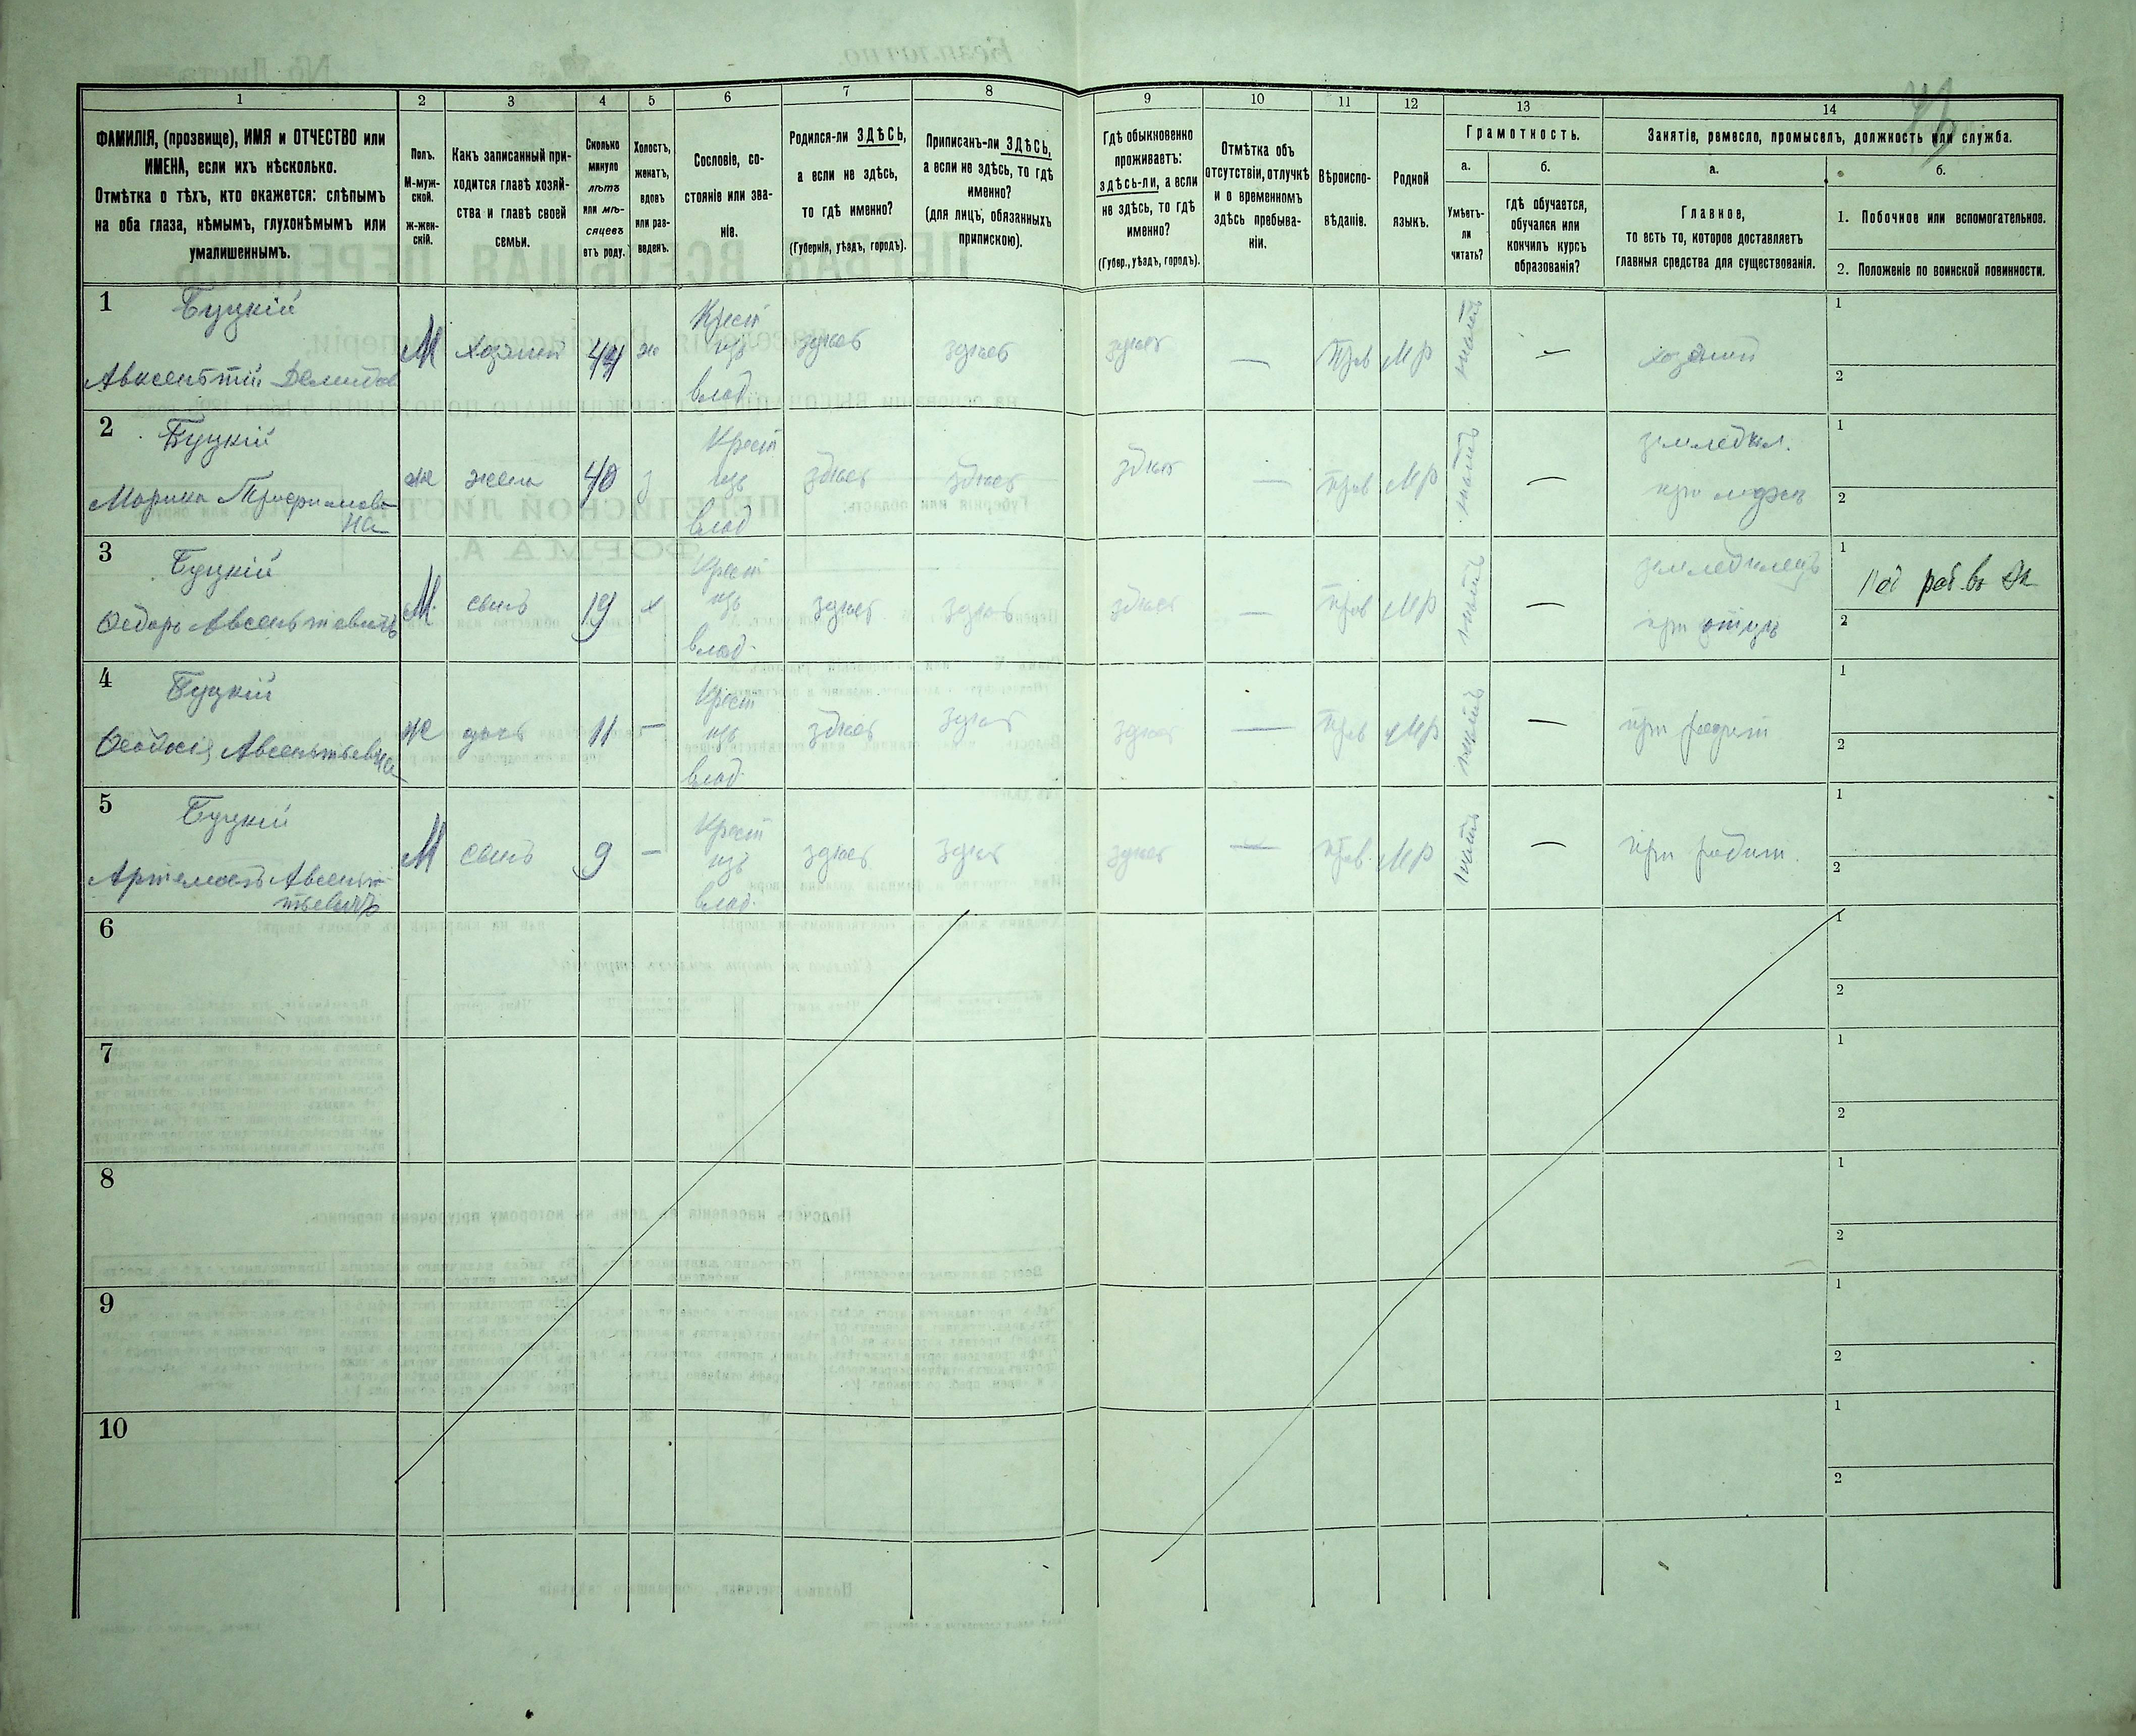 1
2
3
4
5
6
7
8
9
10
11
12
13
14
ФАМИЛІЯ, (прозвище), ИМЯ и ОТЧЕСТВО или
ИМЕНА, если ихъ нѣсколько.
Отмѣтка о тѣхъ, кто окажется: слѣпымъ
на оба глаза, нѣмымъ, глухонѣмымъ или
умалишеннымъ.
Полъ.
М-муж-
ской.
ж-жен-
скій.
Какъ записанный при-
ходится главѣ хозяй-
ства и главѣ своей
семьи.
Сколько
минуло
лѣтъ
или мѣ-
сяцевъ
отъ роду.
Холостъ,
женатъ,
вдовъ
или раз-
веденъ.
Сословіе, со-
стояніе или зва-
ніе.
Родился-ли ЗДѢСЬ,
а если не здѣсь,
то гдѣ именно?
(Губернія, уѣздъ, городъ).
Приписанъ-ли ЗДѢСЬ,
а если не здѣсь, то гдѣ
именно?
(для лицъ, обязанныхъ
припискою).
Гдѣ обыкновенно
проживаетъ:
здѣсь-ли, а если
не здѣсь, то гдѣ
именно?
(Губер., уѣздъ, городъ).
Отмѣтка объ
отсутствіи, отлучкѣ
и о временномъ
здѣсь пребыва-
ніи.
Вѣроиспо-
вѣданіе.
Родной
языкъ.
Грамотность.
а.
Умѣетъ-
ли
читать?
б.
гдѣ обучается,
обучался или
кончилъ курсъ
образованія?
Занятіе, ремесло, промыселъ, должность или служба.
а.
Главное,
то есть то, которое доставляетъ
главныя средства для существованія.
б.
1. Побочное или вспомогательное.
2. Положеніе по воинской повинности.
1 Буцкій
Авксентій Демидов
М хозяинъ 44 ж Крест изъ влад. здѣсь здѣсь здѣсь — Прав МР — хозяинъ
1
2
2 Буцкій
Марина Трофимов-
на
же жена 40 Крест изъ влад здѣсь здѣсь здѣсь — прав МР — земледѣл.
при мужѣ
1
2
3 Буцкій
Ѳедоръ Авсентіевичъ
М. сынъ 19 х Крест изъ влад. здѣсь здѣсь здѣсь — прав МР — земледѣлецъ
при отцѣ
1 раб. въ
2
4 Буцкій
Ѳеодосія Авсентьевна
же дочь 11 — Крест изъ влад. здѣсь здѣсь здѣсь — прав МР — при родит
1
2
5 Буцкій
Артемонъ Авсен-
тьевичъ
М сынъ 9 — Крест изъ влад. здѣсь здѣсь здѣсь — прав. МР — при родит.
1
2
6
1
2
7
1
2
8
1
2
9
1
2
10
1
2